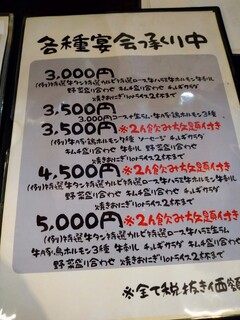 各種宴会承り中
3,000円
(例)特選牛タン特選カルビ特選ロース牛ハラミ牛ホルモン牛ホルモン
野菜盛り合わせ キムチ盛り合わせ チョレギサラダ
焼きおにぎりorドライス2種まで
3,500円
3,000円コース+牛ラム、牛、豚ホルモン3種
3,500円※2h飲み放題付き
(例)牛、豚、鶏ホルモン9種 ソーセージ 牛ホルモン
キムチ盛り合わせ 野菜盛り合わせ チョレギサラダ
4,500円※2h飲み放題付き
(例)特選牛タン特選カルビ特選ロース牛ハラミ牛ホルモン牛ホルモン
野菜盛り合わせ キムチ盛り合わせ チョレギサラダ
焼きおにぎりorドライス2種まで
5,000円※2h飲み放題付き
(例)特選牛タン特選カルビ特選ロース牛ハラミ牛ラム
牛、豚、鳥ホルモン3種 牛ホルモン チョレギサラダ キムチ盛り合わせ
野菜盛り合わせ 焼きおにぎりorドライス2種まで
※全て税抜き価額